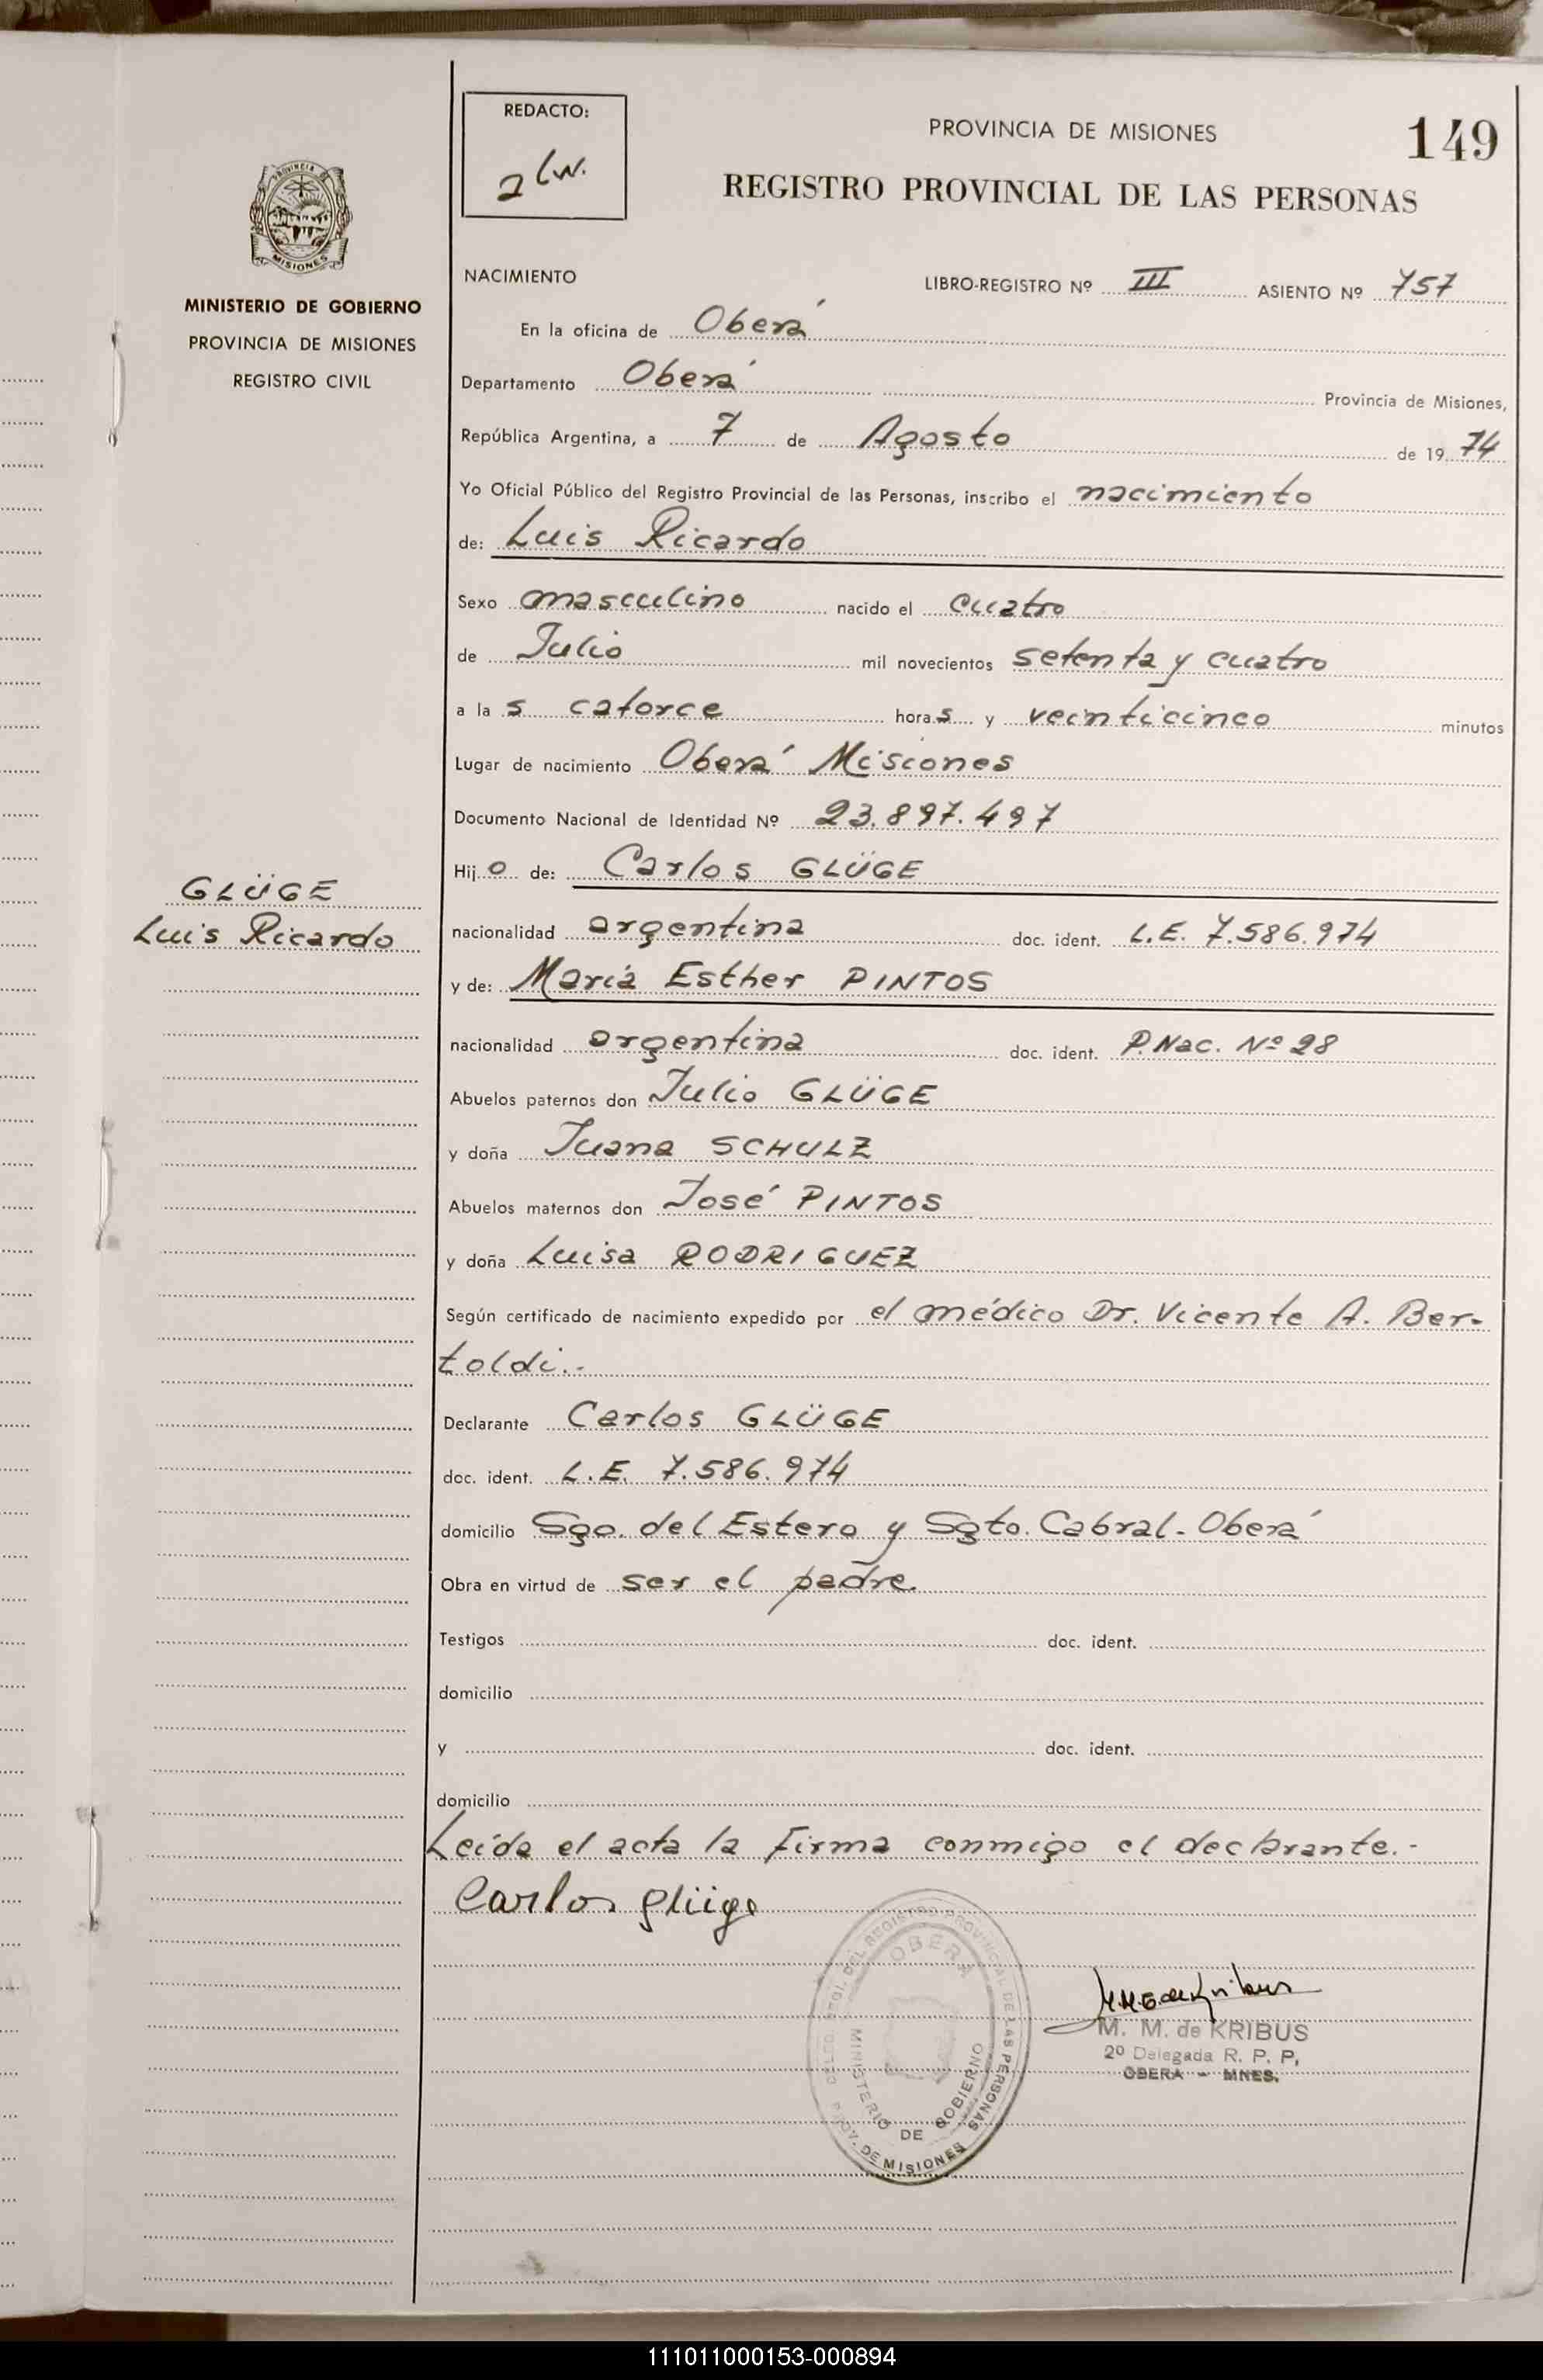 REDACTO:
PROVINCIA DE MISIONES
149
REGISTRO PROVINCIAL DE LAS PERSONAS
PROVINCIA DE
MISIONES
MINISTERIO DE GOBIERNO
PROVINCIA DE MISIONES
REGISTRO CIVIL
NACIMIENTO LIBRO-REGISTRO Nº III ASIENTO Nº 757
En la oficina de Oberá
Departamento Oberá Provincia de Misiones,
República Argentina, a 7 de Agosto de 19 74
Yo Oficial Público del Registro Provincial de las Personas, inscribo el nacimiento
de: Luis Ricardo
Sexo masculino nacido el cuatro
de Julio mil novecientos setenta y cuatro
a la s catorce hora s y veinticinco minutos
Lugar de nacimiento Oberá Misiones
Documento Nacional de Identidad Nº 23.897.497
Hij o de: Carlos GLÜGE
GLÜGE
Luis Ricardo
nacionalidad argentina doc. ident. L.E. 7.586.974
y de: María Esther PINTOS
nacionalidad argentina doc. ident. P.Nac. Nº 28
Abuelos paternos don Julio GLÜGE
y doña Juana SCHULZ
Abuelos maternos don José PINTOS
y doña Luisa RODRIGUEZ
Según certificado de nacimiento expedido por el médico Dr. Vicente A. Ber-
toldi.-
Declarante Carlos GLÜGE
doc. ident. L.E. 7.586.974
domicilio Sgo. del Estero y Sgto. Cabral - Oberá
Obra en virtud de ser el padre.
Testigos doc. ident.
domicilio
y doc. ident.
domicilio
Leída el acta la firma conmigo el declarante.-
Carlos glüge
DEL REGISTRO PROVINCIAL DE LAS PERSONAS
OBERA
MINISTERIO DE GOBIERNO
PROV. DE MISIONES
M. M. de KRIBUS
2º Delegada R. P. P.
OBERA - MNES.
111011000153-000894